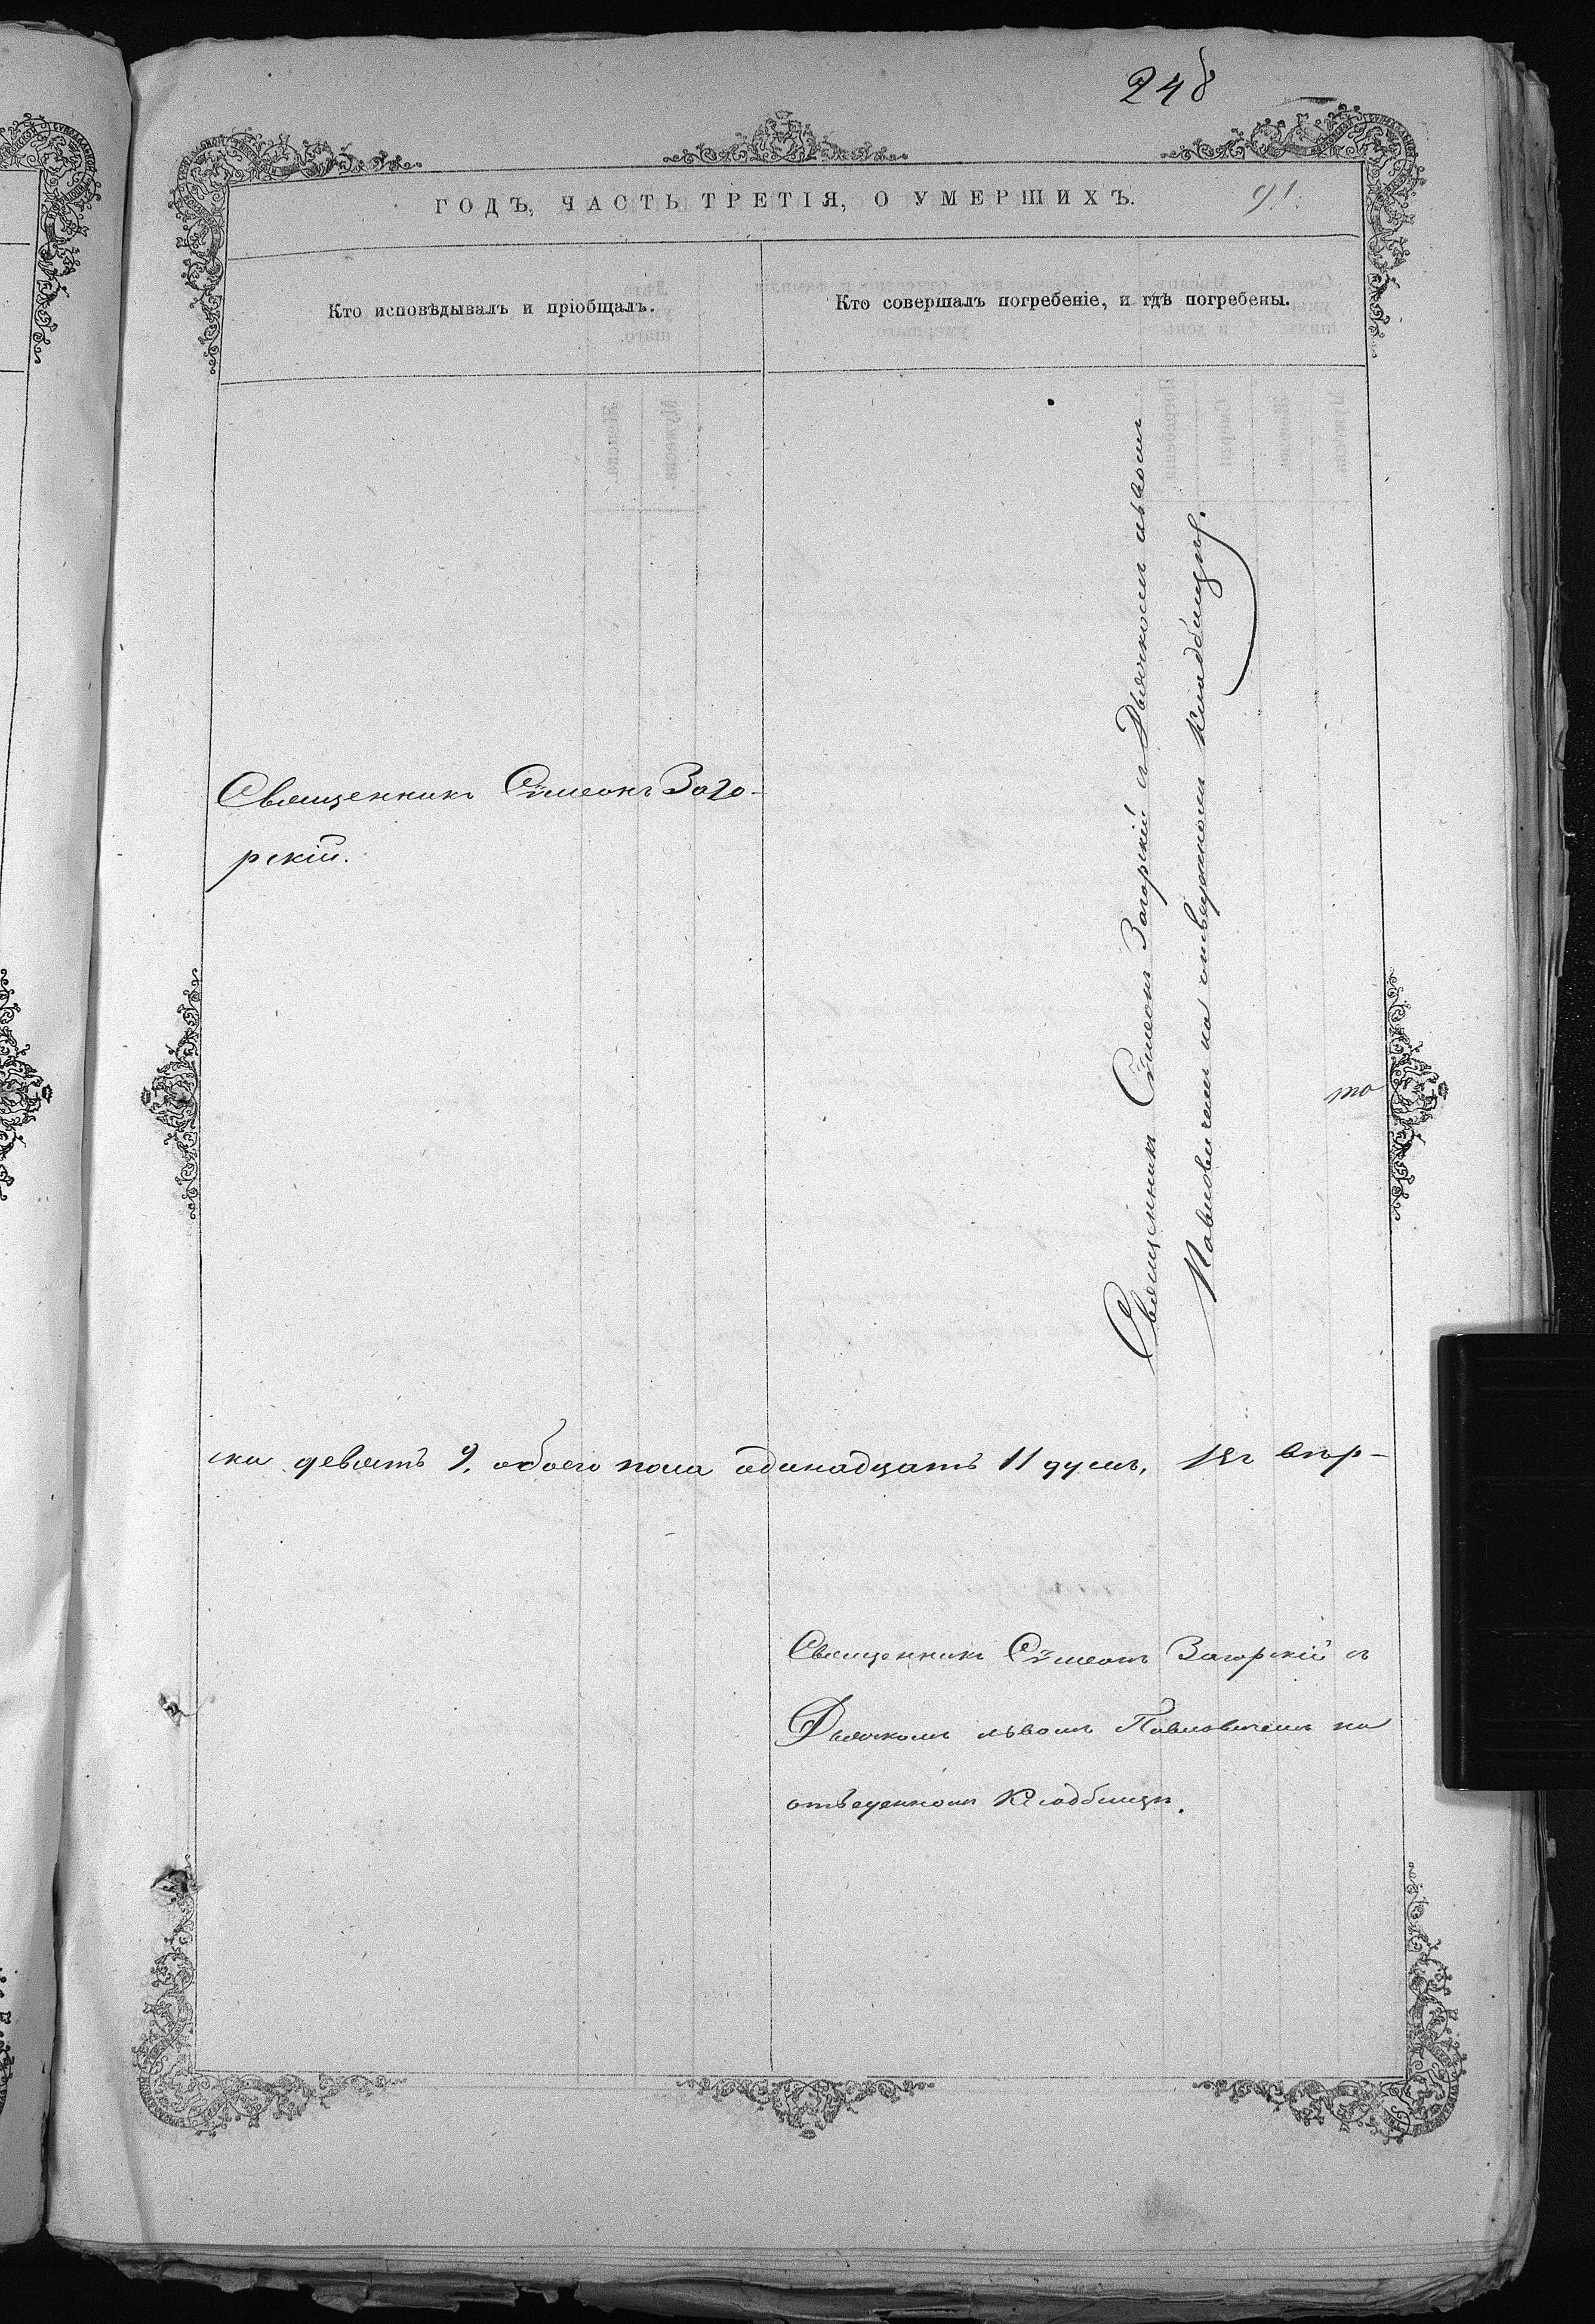 248
ГОДЪ, ЧАСТЬ ТРЕТІЯ, О УМЕРШИХЪ.
91.
Кто исповѣдывалъ и пріобщалъ.
Кто совершалъ погребеніе, и гдѣ погребены.
Священникъ Сѵмеонъ Заго-
рскій.
Священникъ Сѵмеонъ Загорскій съ Дьячкомъ львомъ
Павловичемъ на отведенномъ Кладбищѣ.
то
ска девять 9, обоего пола одинадцать 11 душъ,
Священникъ Сѵмеонъ Загорскій съ
Дьячкомъ львомъ Павловичемъ на
отведенномъ Кладбищѣ.